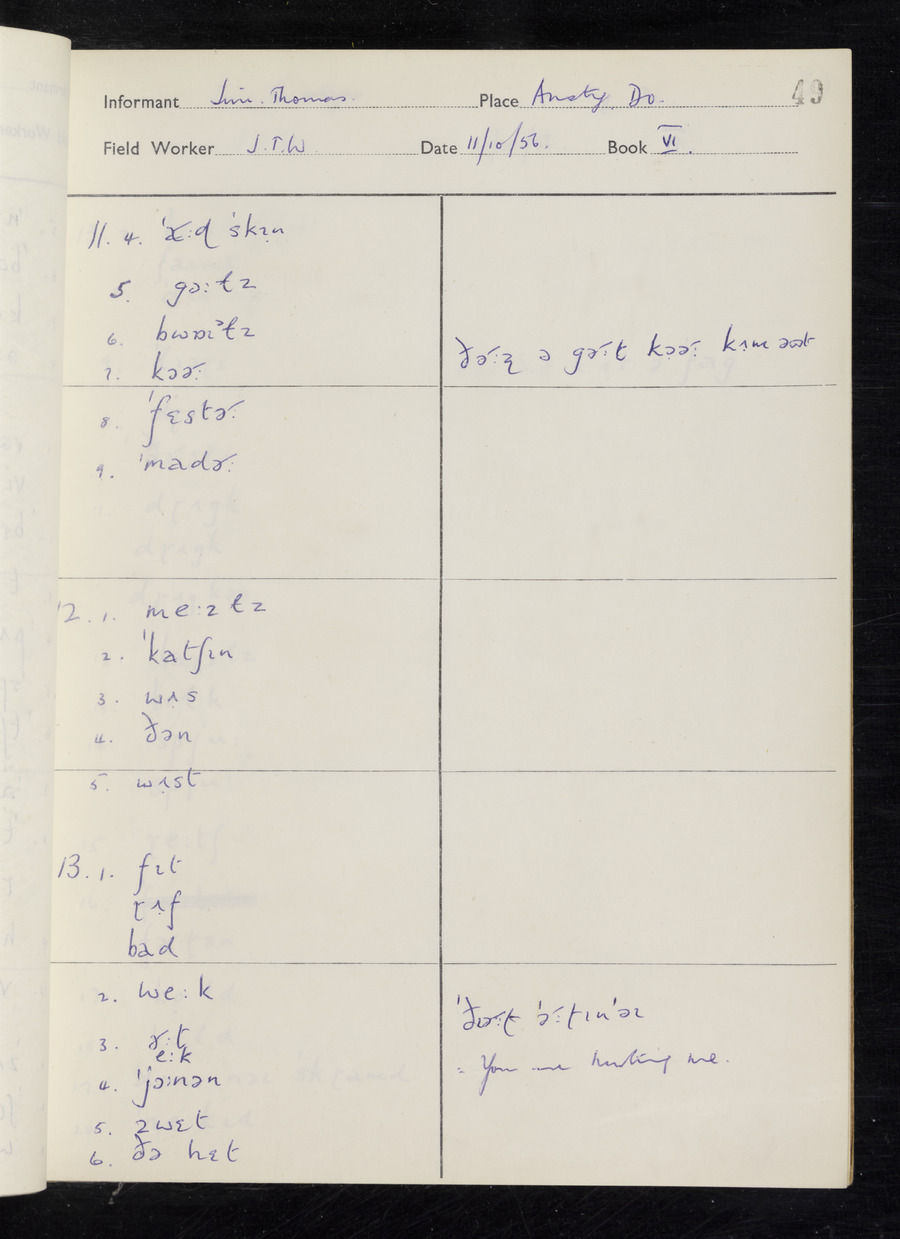 49
Informant Jim. Thomas. Place Ansty, Do.
Field Worker J.T.W Date 11/10/56. Book VI.
11. 4. ˈæːɖ ˈskɪn
5. gɔːtz
6. bwɒɪᵊtz
7. kɔɚː
ðɚːz ə gɚːt kɔɚː kʌm əʊt
8. ˈfɛstɚː
9. ˈmadɚː
12. 1. meːztz
2. ˈkatʃɪn
3. wʌs
4. ðən
5. wʌst
13. 1. fɪt
ɽʌf
bad
2. weːk
3. ɚːʈ
eːk
4. ˈjɔːnən
5. zwɛt
6. ðə hɛt
= You are hurting me.